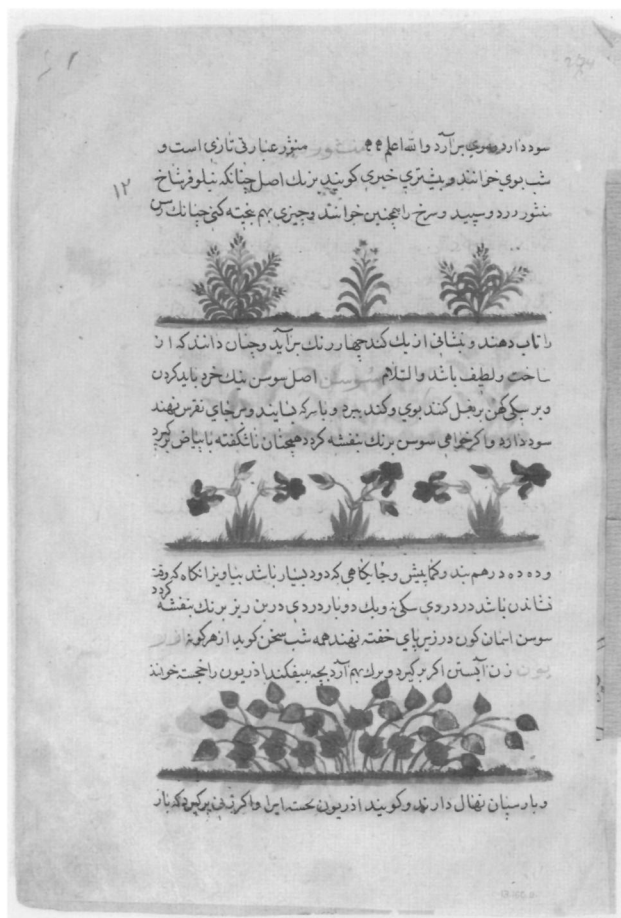 سود دارد و موی برآرد والله اعلم منثور منثور عبارتی تازی است و
شب بوی خوانند و بیشتری خیری کویند بزنک اصل چنانکه نیلوفر شاخ
منثور زرد و سپید و سرخ را همچنین خوانند و چیزی بهم کنی چنانک رسن
۱۲
را تاب دهند و نشانی از یک کند چهار رنک برآید و چنان دانند که از
ساخت و لطیف باشد والسلام سوسن اصل سوسن نیک خرد باید کردن
و بر کهن و بغل کنند بوی و کند ببرد و با سرکه بسایند و بر جای نقرس نهند
سود دارد و اکر خواهی سوسن برنک بنفشه کردد همچنان ناشکفته با بیاض بزکیرد
و ده ده درهم بند و کمابیش و جایکاهی که دود بسیار باشد بیاویز آنکاه که وقت
نشاندن باشد در دردی سکی نه و یک دو بار دردی در بن ریز برنک بنفشه کردد
سوسن اسمان کون در زیر پای خفته بنهند همه شب سخن کوید از هر کونه اذر
یون زن آبستن اکر برکیرد و برک بهم آرد بچه بیفکند اذریون را خوانند
و پارسیان نهال دارند و کویند اذریون است ایرا و اکر زنی برکیرد که بار